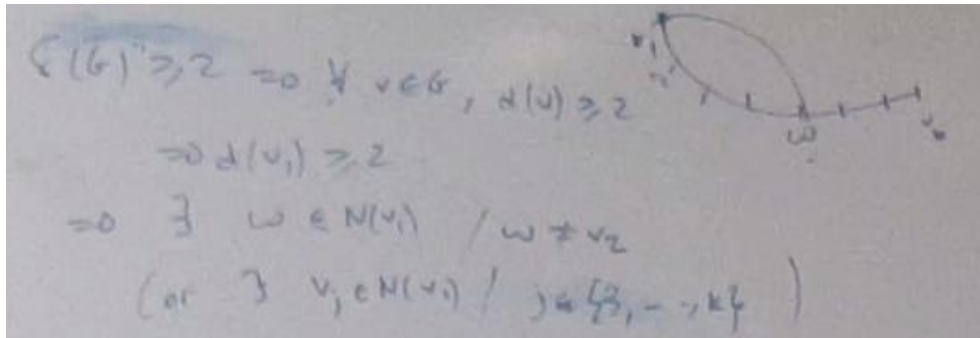 δ(G) ≥ 2 => ∀ v ∈ G, d(v) ≥ 2
=> d(v₁) ≥ 2
=> ∃ w ∈ N(v₁) / w ≠ v₂
(or ∃ vⱼ ∈ N(v₁) / j ∈ {3, -, k})
v₁
w
vₖ